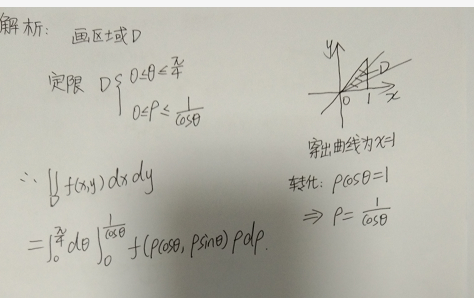 解析: 画区域D
定限 D{ 0≤θ≤π/4
0≤ρ≤1/cosθ
y
D
0 1 x
穿出曲线为x=1
转化: ρcosθ=1
⇒ ρ=1/cosθ
∴ ∬_D f(x,y)dxdy
=∫_0^{π/4} dθ ∫_0^{1/cosθ} f(ρcosθ, ρsinθ)ρdρ.